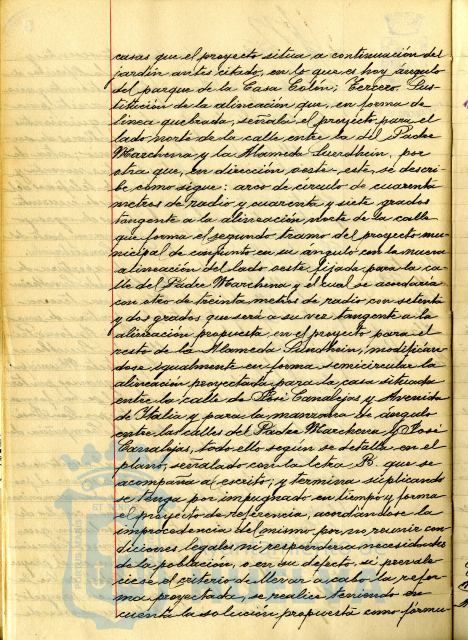 casas que el proyecto situa a continuación del
jardín antes citado, en lo que es hoy ángulo
del parque de la Casa Colón; Tercero. Sus-
titución de la alineación que, en forma de
linea quebrada, señala el proyecto para el
lado norte de la calle entre la del Padre
Marchena y la Alameda Sundhein, por
otra que, en dirección oeste-este, se descri-
be como sigue: arco de círculo de cuarenta
metros de radio y cuarenta y siete grados
tangente a la alineación norte de la calle
que forma el segundo tramo del proyecto mu-
nicipal de conjunto en su ángulo con la nueva
alineación del lado oeste fijada para la ca-
lle del Padre Marchena y el cual se acordaría
con otro de metros de radio con setenta
y dos grados que será a su vez tangente a la
alineación propuesta en el proyecto para el
resto de la Alameda Sundhein, modificán-
dose igualmente en forma semicircular la
alineación proyectada para la casa situada
entre la calle de José Canalejas y Avenida
de Italia y para la manzana de ángulo
entre las calles del Padre Marchena y José
Canalejas, todo ello según se detalla en el
plano, señalado con la letra B. que se
acompaña al escrito; y termina suplicando
se tenga por impugnado en tiempo y forma
el proyecto de referencia, acordándose la
improcedencia del mismo por no reunir con-
diciones legales ni responder a necesidades
de la población, o en su defecto, si prevale-
ciese el criterio de llevar a cabo la refor-
ma proyectada, se realice teniendo en
cuenta la solución propuesta como fórmu-